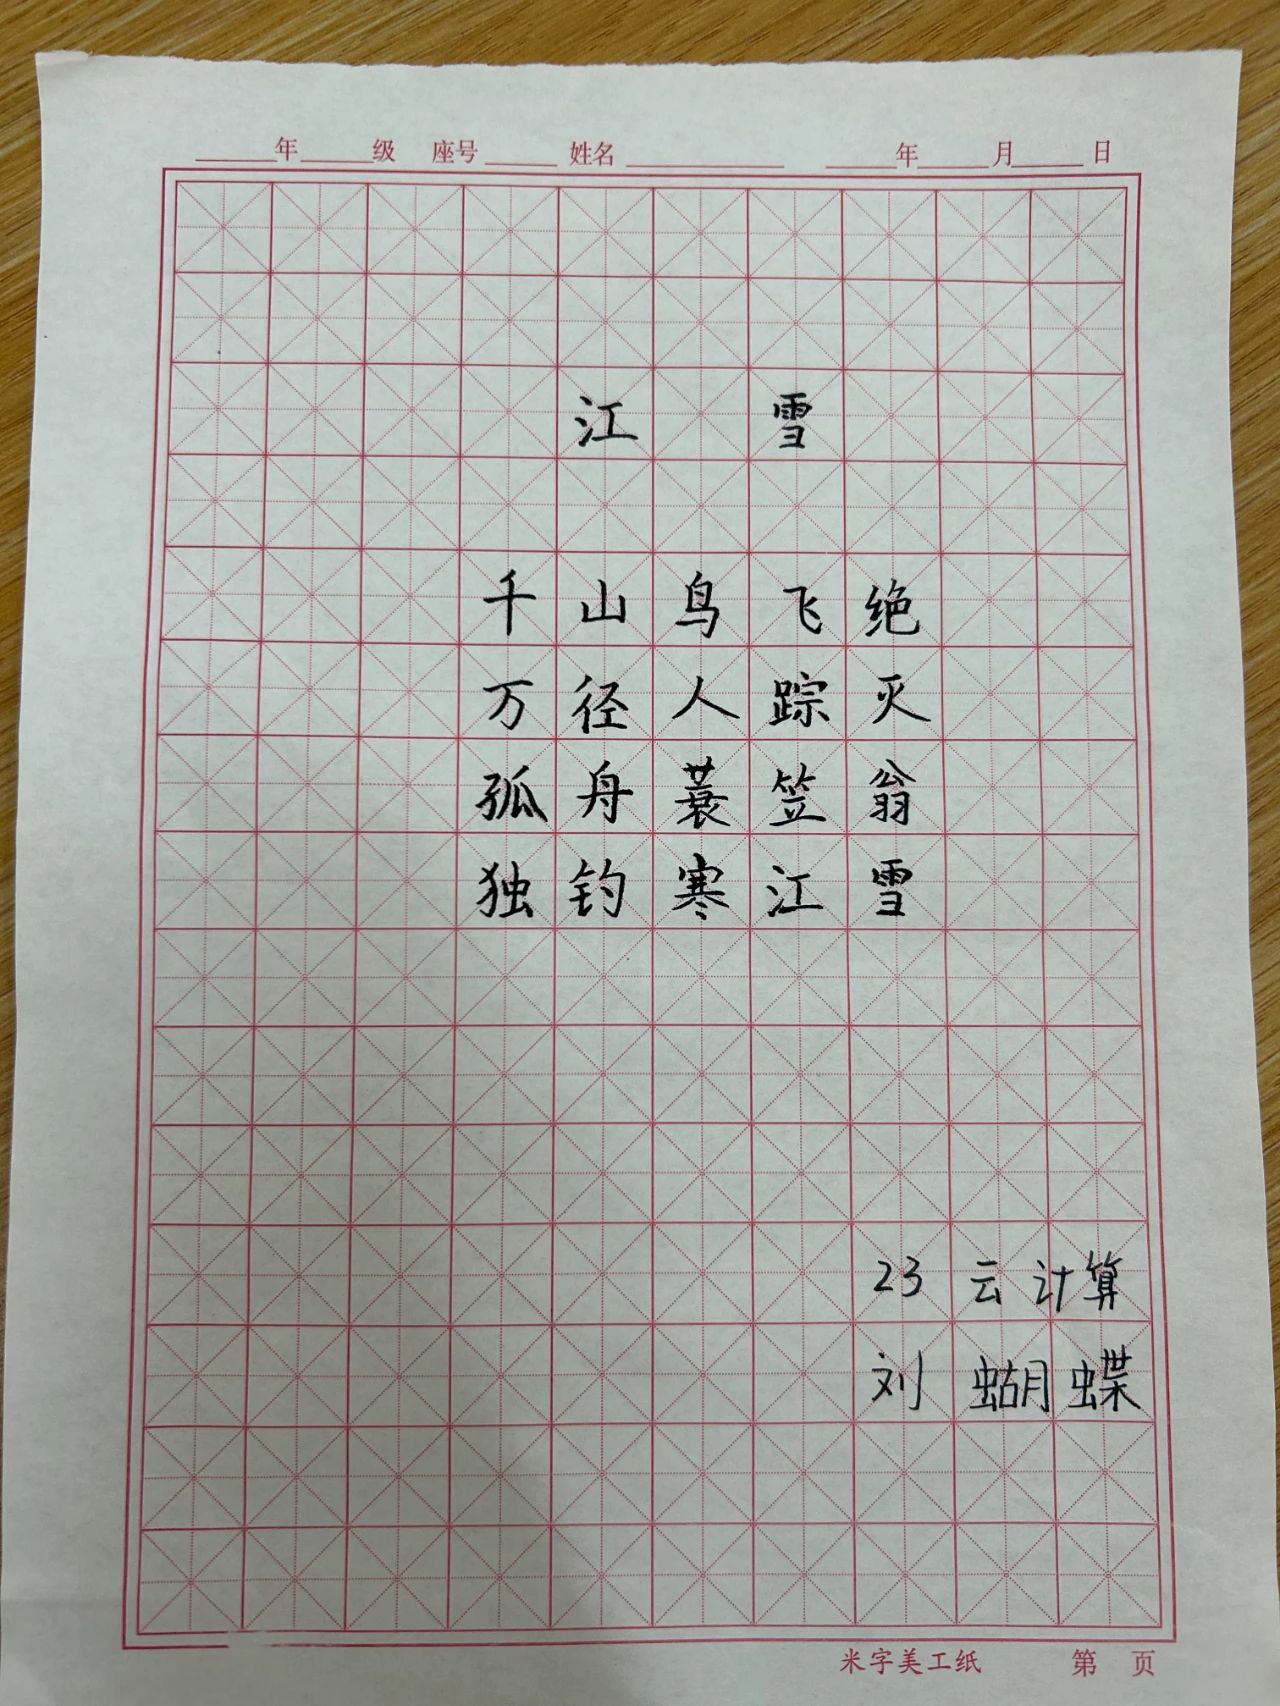 年 级 座号 姓名 年 月 日
江 雪
千山鸟飞绝
万径人踪灭
孤舟蓑笠翁
独钓寒江雪
23 云计算
刘 蝴蝶
米字美工纸 第 页